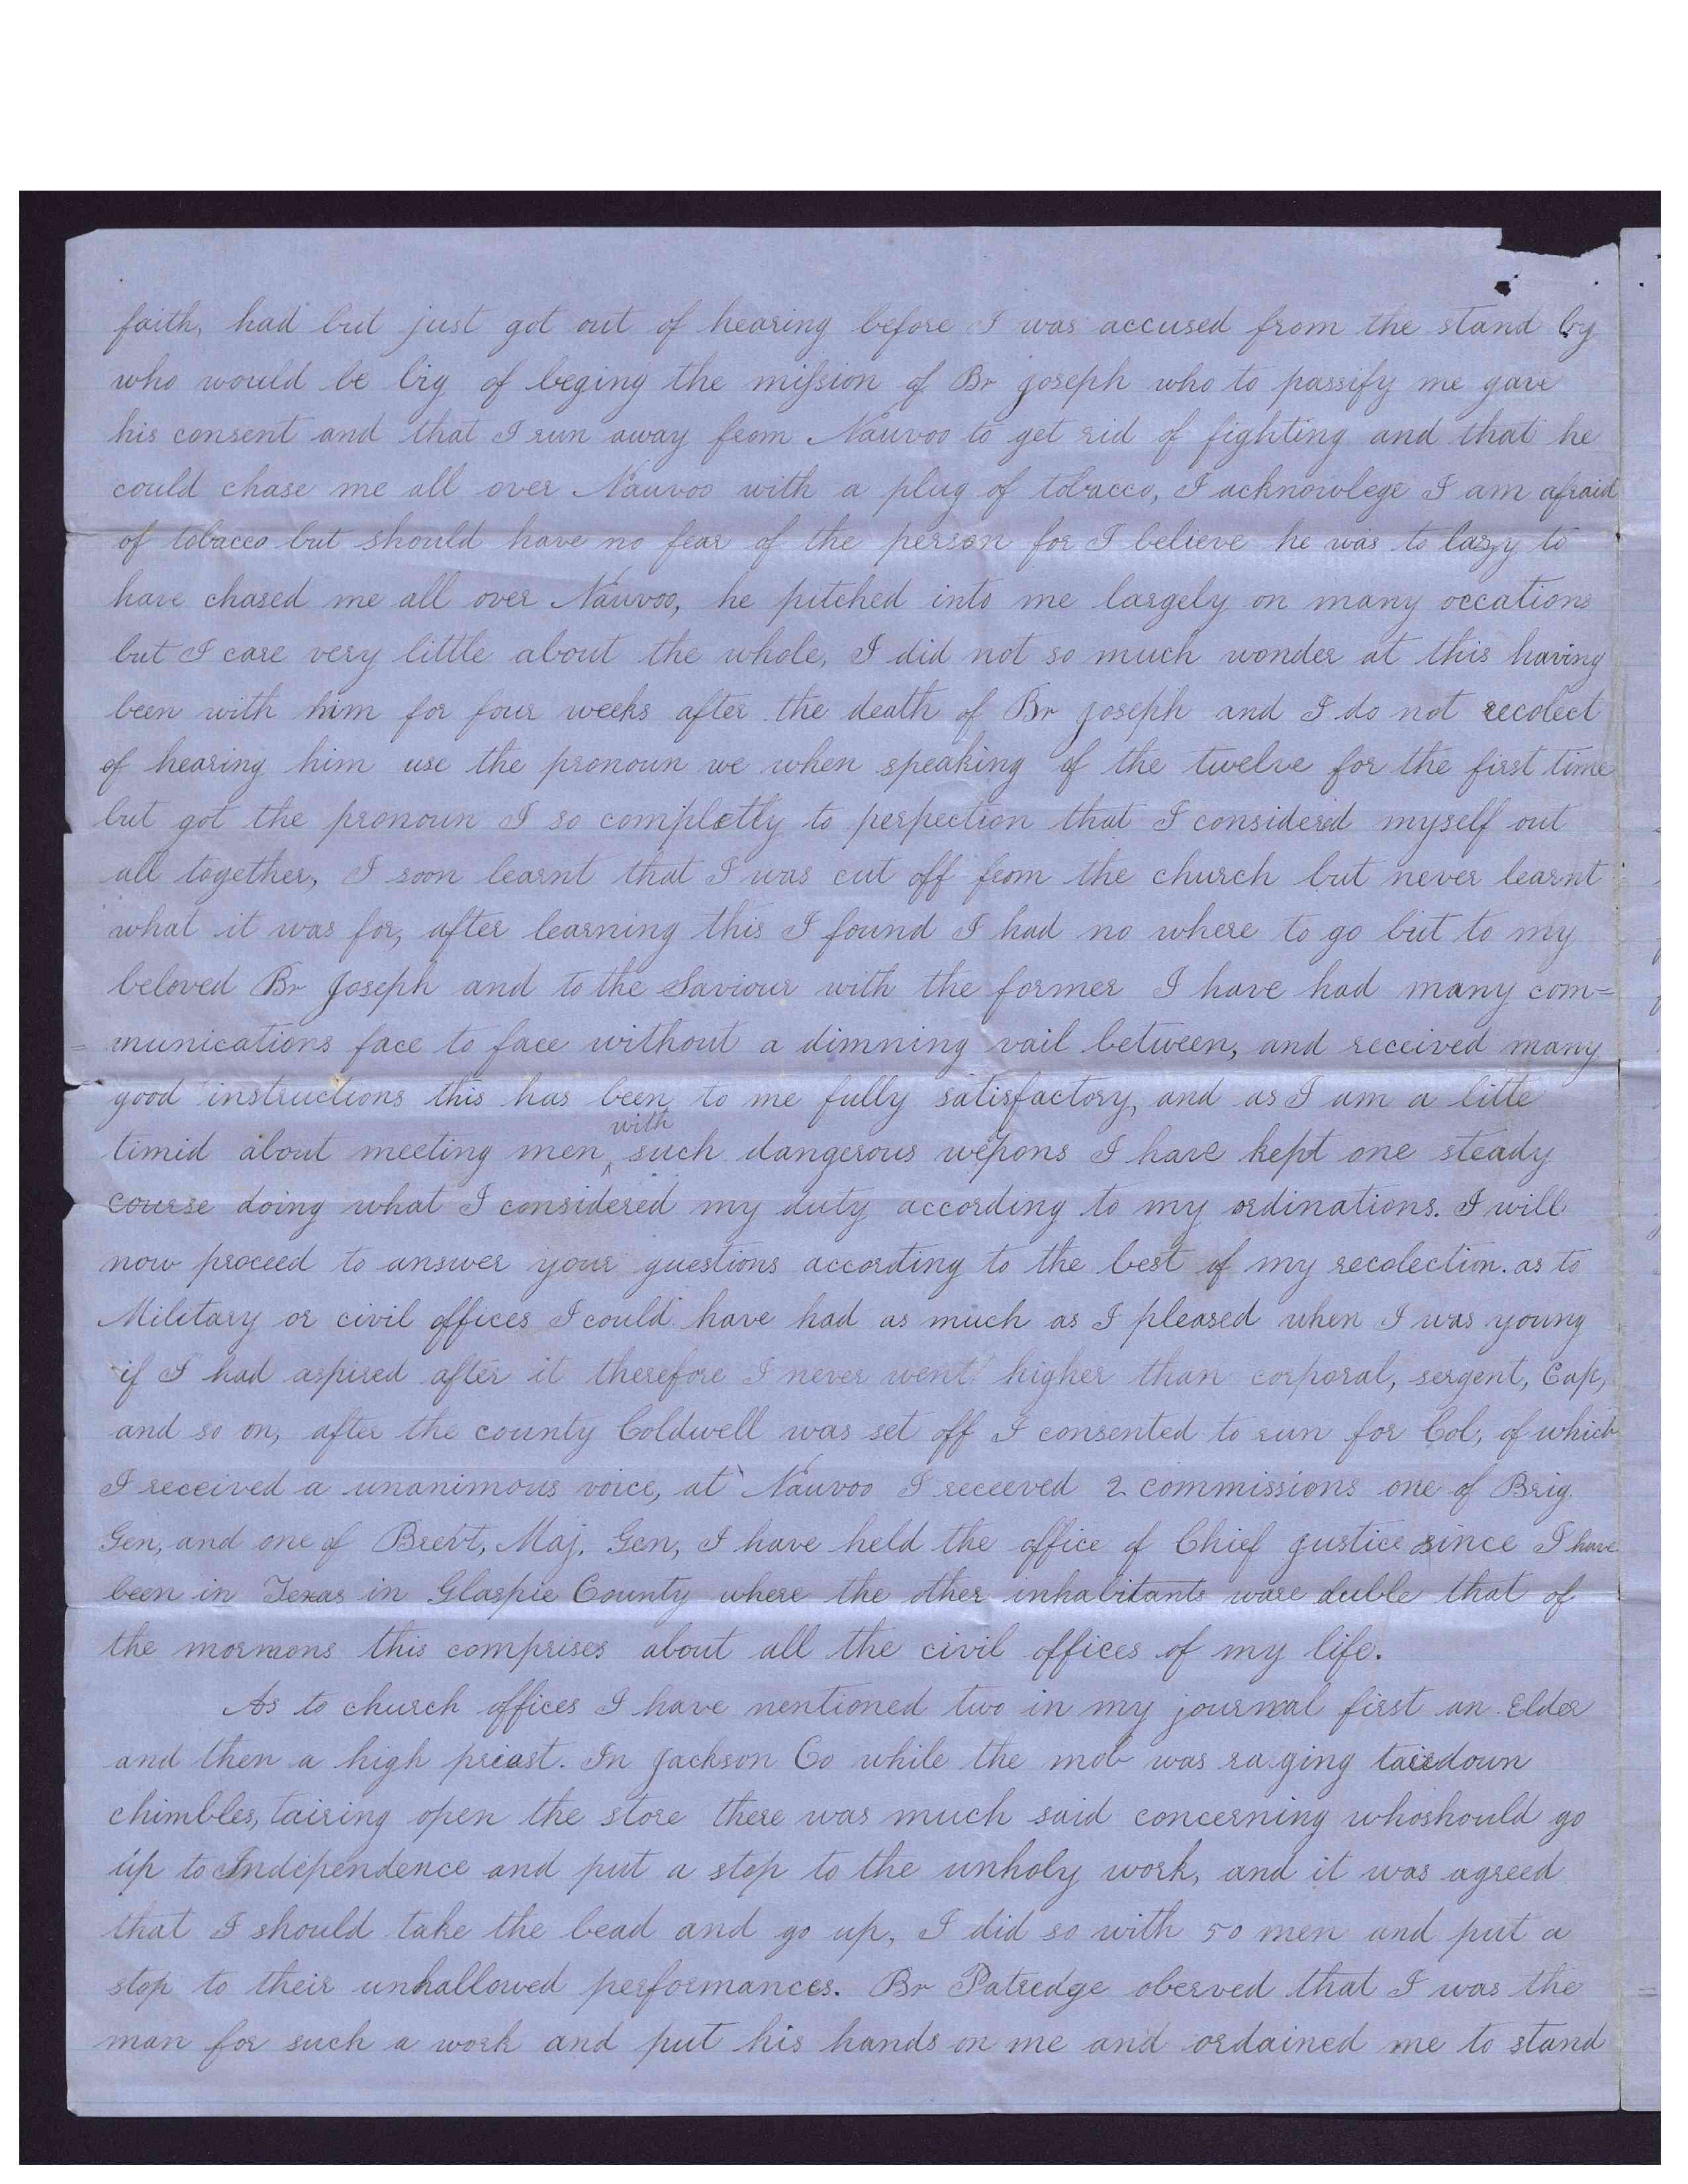 faith, had but just got out of hearing before I was accused from the stand by
who would be big of beging the mission of Br Joseph who to passify me gave
his consent and that I run away from Nauvoo to get rid of fighting and that he
could chase me all over Nauvoo with a plug of tobacco, I acknowlege I am afraid
of tobacco but should have no fear of the person for I believe he was to lazy to
have chased me all over Nauvoo, he pitched into me largely on many occations
but I care very little about the whole, I did not so much wonder at this having
been with him for four weeks after the death of Br Joseph and I do not recolect
of hearing him use the pronoun we when speaking of the twelve for the first time
but got the pronoun I so completly to perpection that I considered myself out
all together, I soon learnt that I was cut off from the church but never learnt
what it was for, after learning this I found I had no where to go but to my
beloved Br Joseph and to the Saviour with the former I have had many com=
=munications face to face without a dimning vail between, and received many
good instructions this has been to me fully satisfactory, and as I am a litte
timid about meeting men with such dangerous wepons I have kept one steady
course doing what I considered my duty according to my ordinations. I will
now proceed to answer your questions according to the best of my recolection. as to
Miletary or civil offices I could have had as much as I pleased when I was young
if I had aspired after it therefore I never went higher than corporal, sergent, Cap,
and so on, after the county Coldwell was set off I consented to run for Col, of which
I received a unanimous voice, at Nauvoo I receeved 2 commissions one of Brig.
Gen, and one of Brevt, Maj, Gen, I have held the office of Chief Justice since I have
been in Texas in Glaspie County where the other inhabitants ware duble that of
the mormons this comprises about all the civil offices of my life.
As to church offices I have nentioned two in my journal first an Elder
and then a high priast. In Jackson Co while the mob was raging taire down
chimbles, tairing open the store there was much said concerning whoshould go
up to Independence and put a stop to the unholy work, and it was agreed
that I should take the bead and go up, I did so with 50 men and put a
stop to their unhallowed performances. Br Patredge oberved that I was the
man for such a work and put his hands on me and ordained me to stand